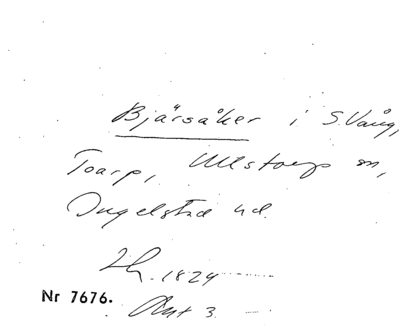 Bjärsåker i S. Vång,
Toarp, Ullstorps sn,
Ingelstad hd.
Lh. 1824
Nr 7676.
Akt 3